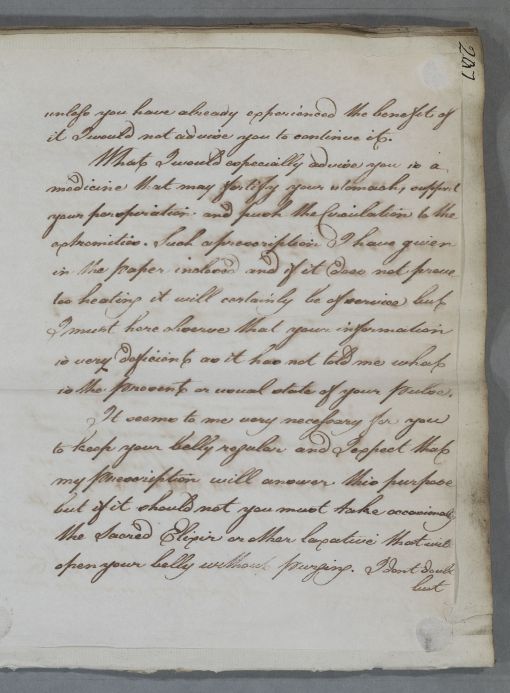 207
unless you have already experienced the benefit of
it I would not advise you to continue it.
What I would especially advise you is a
medicine that may fortify your stomach, support
your perspiration and push the Circulation to the
extremities. Such a prescription I have given
in the paper inclosed and if it does not prove
too heating it will certainly be of service but
I must here observe that your information
is very deficient as it has not told me what
is the present or usual state of your pulse.
It seems to me very necessary for you
to keep your belly regular and I expect that
my prescription will answer this purpose
but if it should not you must take occasionaly
the Sacred Elixir or other laxative that will
open your belly without purging. I dont doubt
but